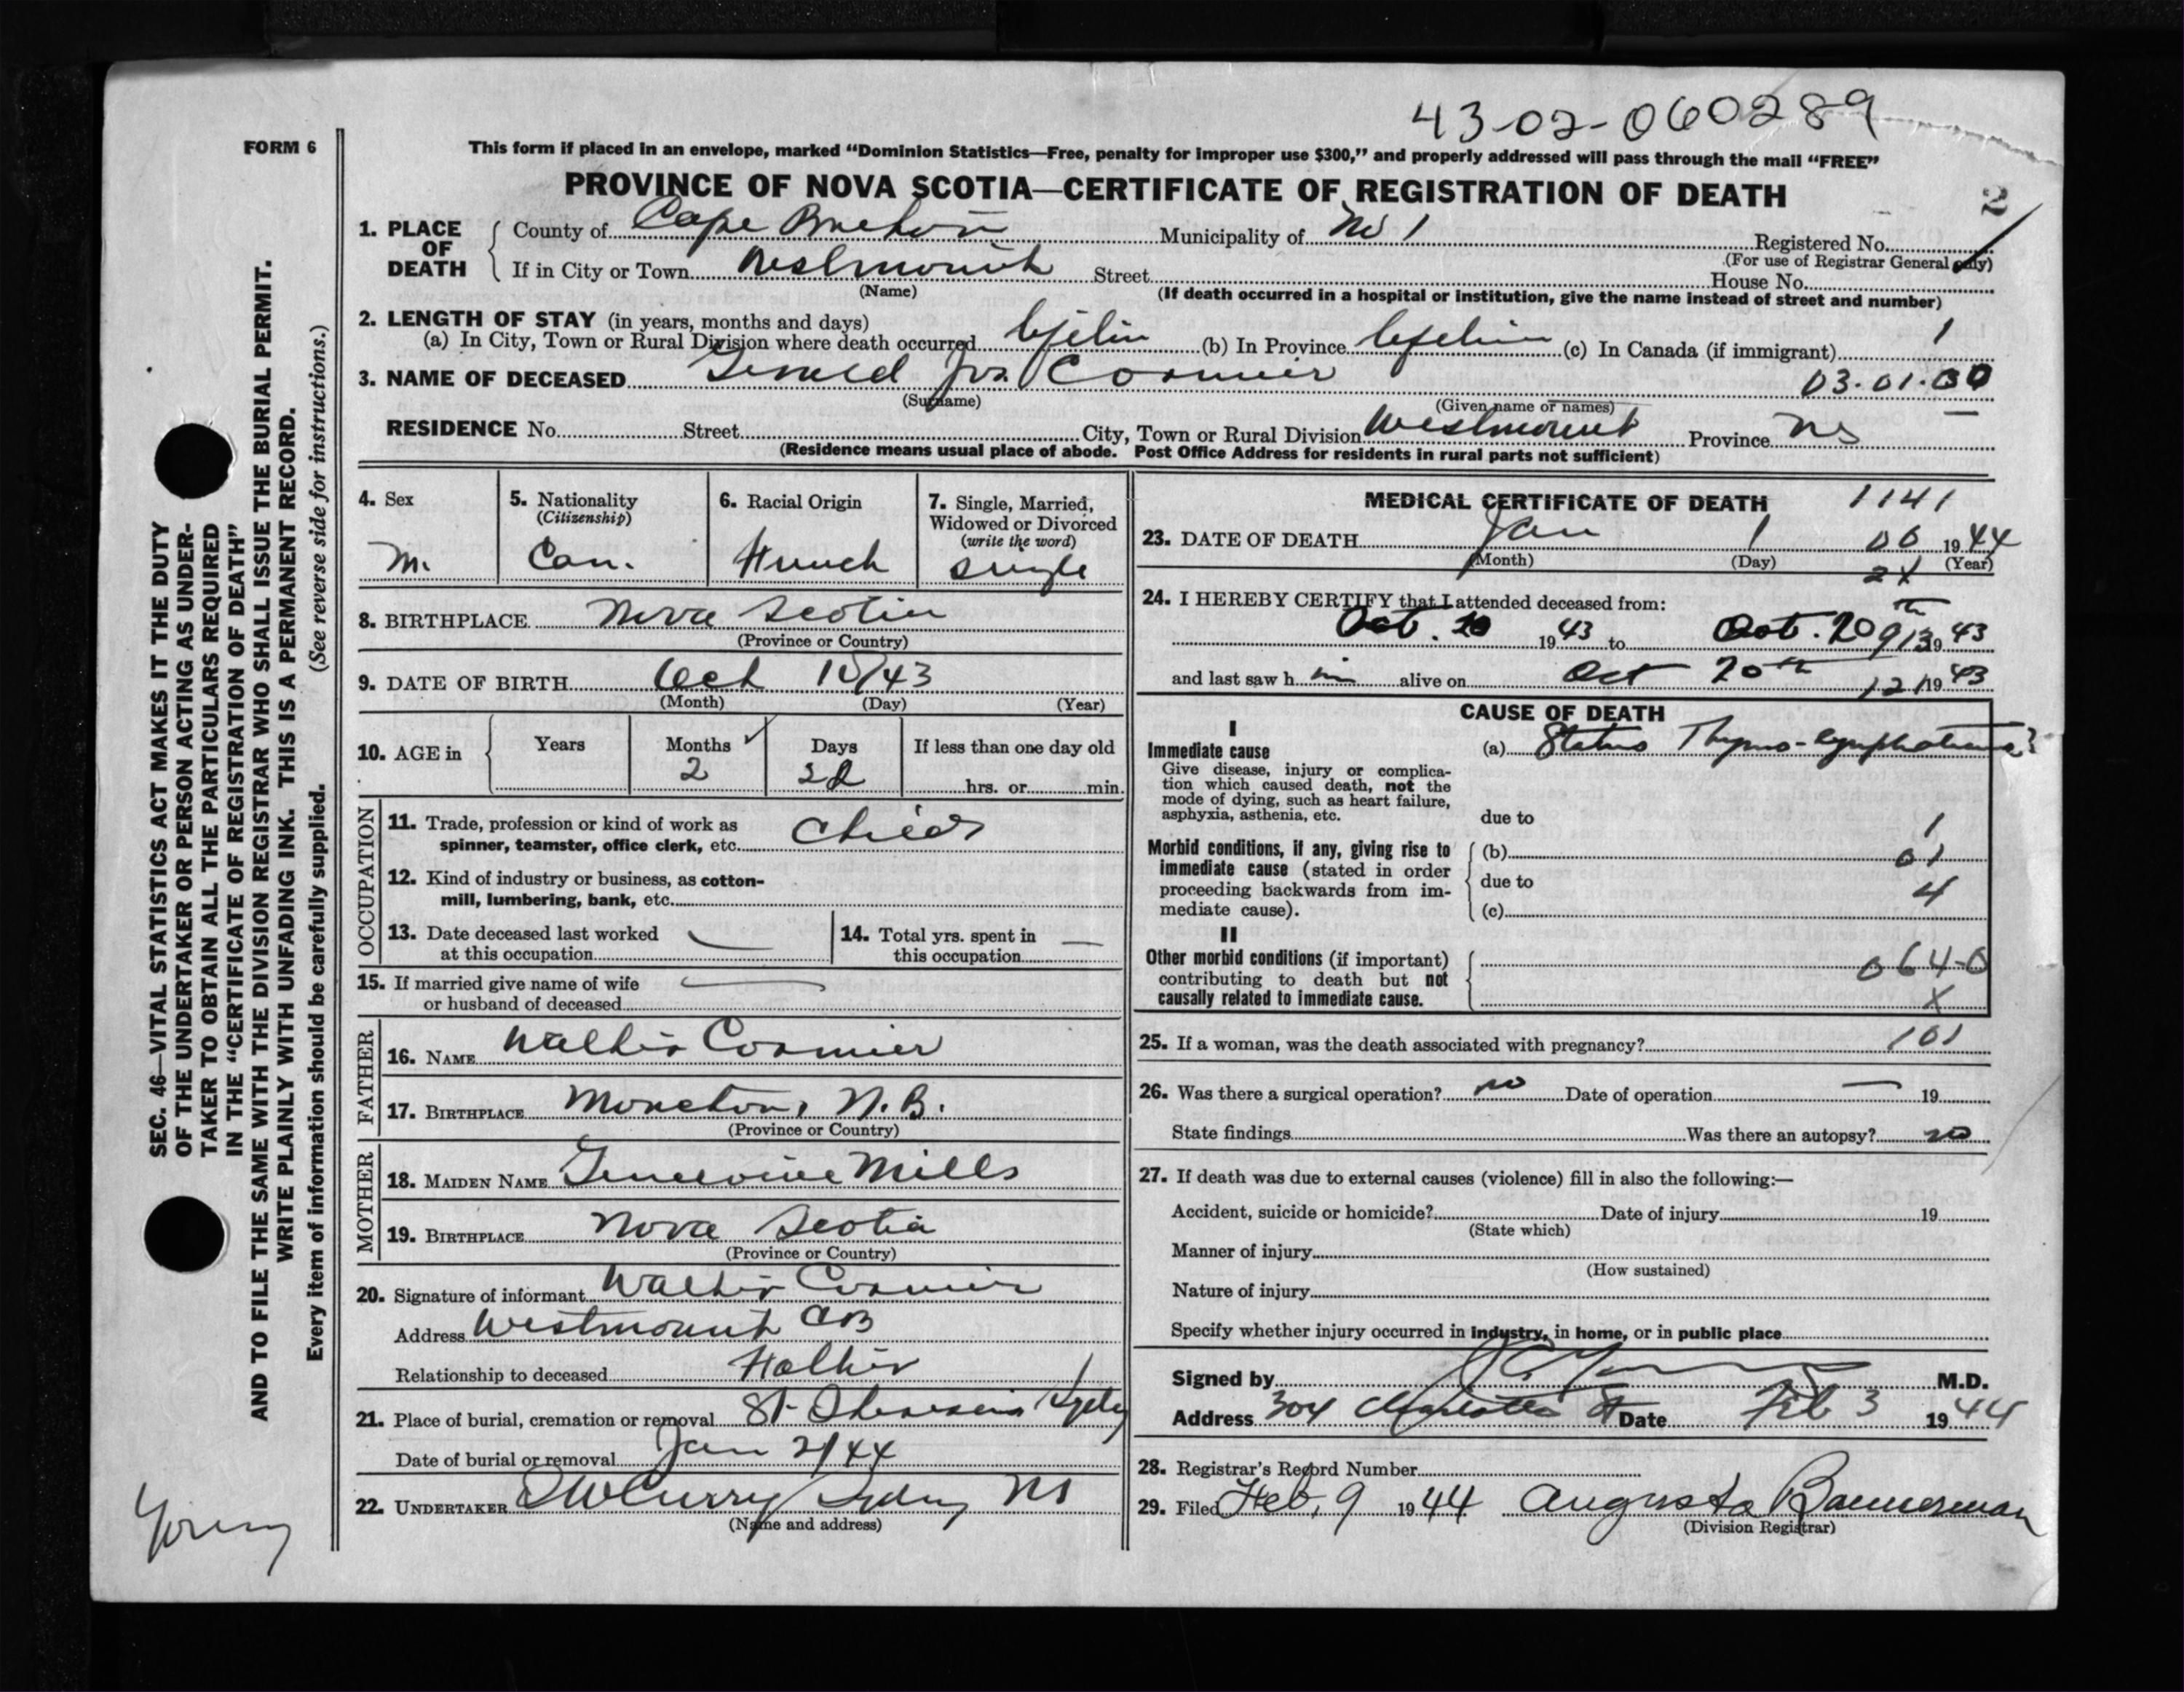 43-02-060289
FORM 6
This form if placed in an envelope, marked “Dominion Statistics—Free, penalty for improper use $300,” and properly addressed will pass through the mail “FREE”
PROVINCE OF NOVA SCOTIA—CERTIFICATE OF REGISTRATION OF DEATH
2
1. PLACE OF DEATH
County of Cape Breton Municipality of No 1 Registered No.
(For use of Registrar General only)
If in City or Town Westmount Street House No.
(Name) (If death occurred in a hospital or institution, give the name instead of street and number)
2. LENGTH OF STAY (in years, months and days)
(a) In City, Town or Rural Division where death occurred Lifetime (b) In Province Lifetime (c) In Canada (if immigrant) 1
3. NAME OF DECEASED Gerald Jos Cormier 03.01.00
(Surname) (Given name or names)
RESIDENCE No. Street City, Town or Rural Division Westmount Province NS
(Residence means usual place of abode. Post Office Address for residents in rural parts not sufficient)
4. Sex M.
5. Nationality (Citizenship) Can.
6. Racial Origin French
7. Single, Married, Widowed or Divorced (write the word) Single
8. BIRTHPLACE Nova Scotia
(Province or Country)
9. DATE OF BIRTH Oct 10/43
(Month) (Day) (Year)
10. AGE in Years Months 2 Days If less than one day old
hrs. or min.
OCCUPATION
11. Trade, profession or kind of work as spinner, teamster, office clerk, etc. Child
12. Kind of industry or business, as cotton-mill, lumbering, bank, etc.
13. Date deceased last worked at this occupation —
14. Total yrs. spent in this occupation —
15. If married give name of wife or husband of deceased —
FATHER
16. NAME Walter Cormier
17. BIRTHPLACE Moncton, N.B.
(Province or Country)
MOTHER
18. MAIDEN NAME Genevieve Mills
19. BIRTHPLACE Nova Scotia
(Province or Country)
20. Signature of informant Walter Cormier
Address Westmount CB
Relationship to deceased Father
21. Place of burial, cremation or removal St. Sydney
Date of burial or removal Jan 2/44
22. UNDERTAKER Curry Sydney NS
(Name and address)
MEDICAL CERTIFICATE OF DEATH 1141
23. DATE OF DEATH Jan 1 06 1944
(Month) (Day) (Year)
24. I HEREBY CERTIFY that I attended deceased from:
Oct. 20 1943 to Oct. 20th 913 1943
and last saw h im alive on Oct 20th 121 1943
CAUSE OF DEATH
I
Immediate cause (a) Status Thymo-lymphaticus?
Give disease, injury or complication which caused death, not the mode of dying, such as heart failure, asphyxia, asthenia, etc.
due to 1
Morbid conditions, if any, giving rise to immediate cause (stated in order proceeding backwards from immediate cause).
(b) 01
due to 4
(c)
II
Other morbid conditions (if important) contributing to death but not causally related to immediate cause. 064-0
X
25. If a woman, was the death associated with pregnancy? 101
26. Was there a surgical operation? no Date of operation — 19
State findings Was there an autopsy? no
27. If death was due to external causes (violence) fill in also the following:—
Accident, suicide or homicide? Date of injury 19
(State which)
Manner of injury
(How sustained)
Nature of injury
Specify whether injury occurred in industry, in home, or in public place
Signed by M.D.
Address 304 Charlotte St Date Feb 3 1944
28. Registrar's Record Number
29. Filed Feb. 9 1944 Augusta Bannerman
(Division Registrar)
SEC. 46—VITAL STATISTICS ACT MAKES IT THE DUTY
OF THE UNDERTAKER OR PERSON ACTING AS UNDER-
TAKER TO OBTAIN ALL THE PARTICULARS REQUIRED
IN THE “CERTIFICATE OF REGISTRATION OF DEATH”
AND TO FILE THE SAME WITH THE DIVISION REGISTRAR WHO SHALL ISSUE THE BURIAL PERMIT.
WRITE PLAINLY WITH UNFADING INK. THIS IS A PERMANENT RECORD.
Every item of information should be carefully supplied. (See reverse side for instructions.)
Young